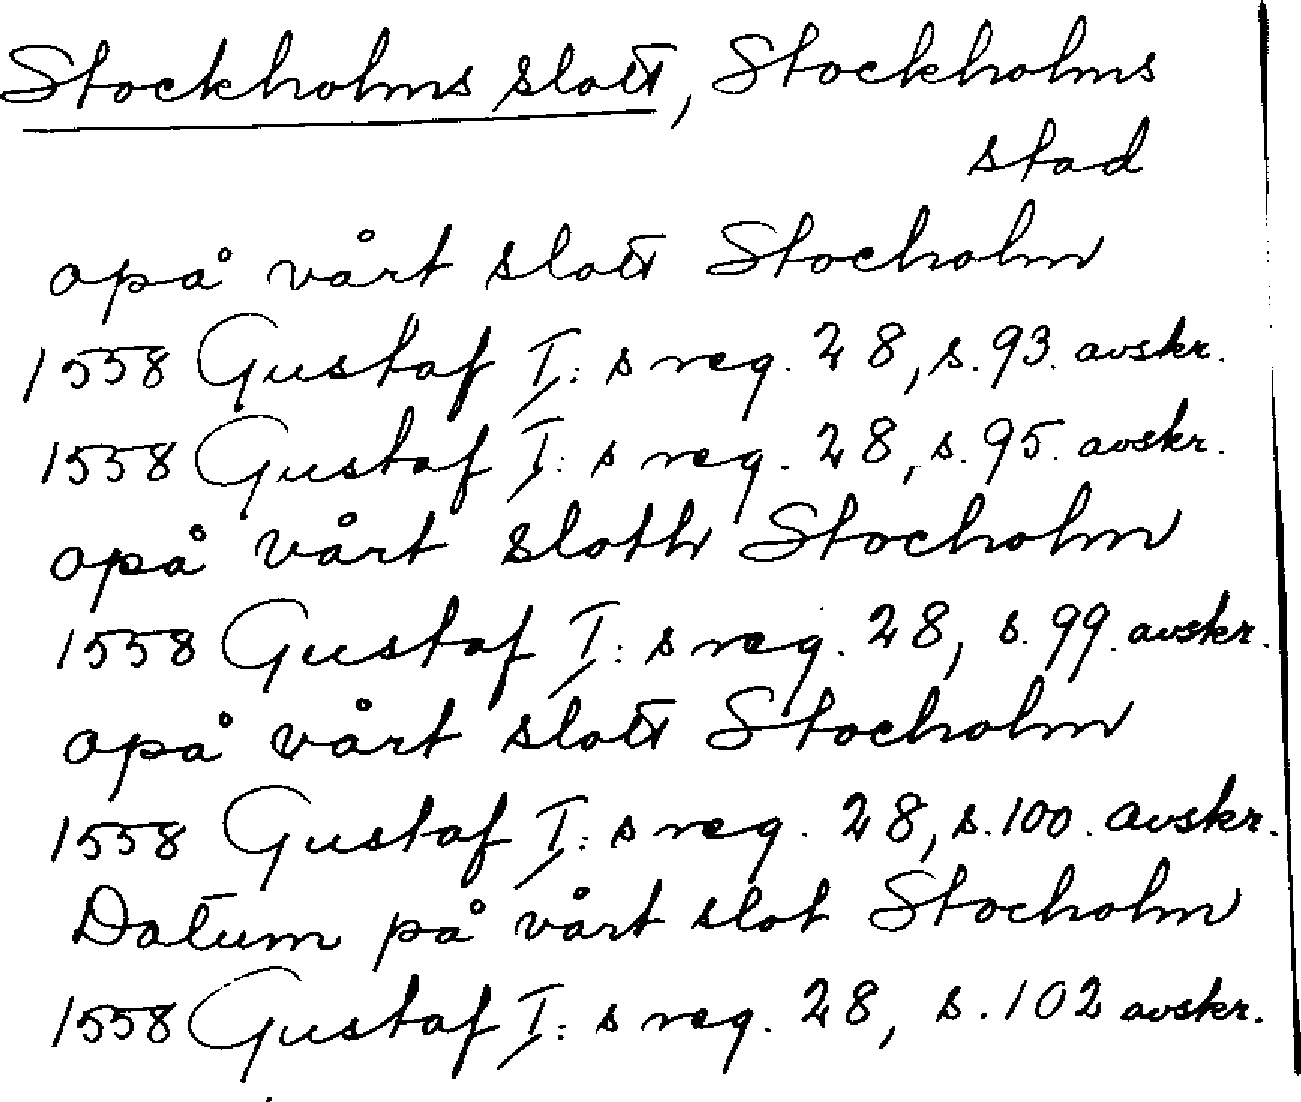 Stockholms slott, Stockholms
stad
opå vårt slott Stocholm
1558 Gustaf I:s reg. 28, s. 93. avskr.
1558 Gustaf I:s reg. 28, s. 95. avskr.
opå vårt sloth Stocholm
1558 Gustaf I:s reg. 28, s. 99. avskr.
opå vårt slott Stocholm
1558 Gustaf I:s reg. 28, s. 100. avskr.
Datum på vårt slot Stocholm
1558 Gustaf I:s reg. 28, s. 102 avskr.